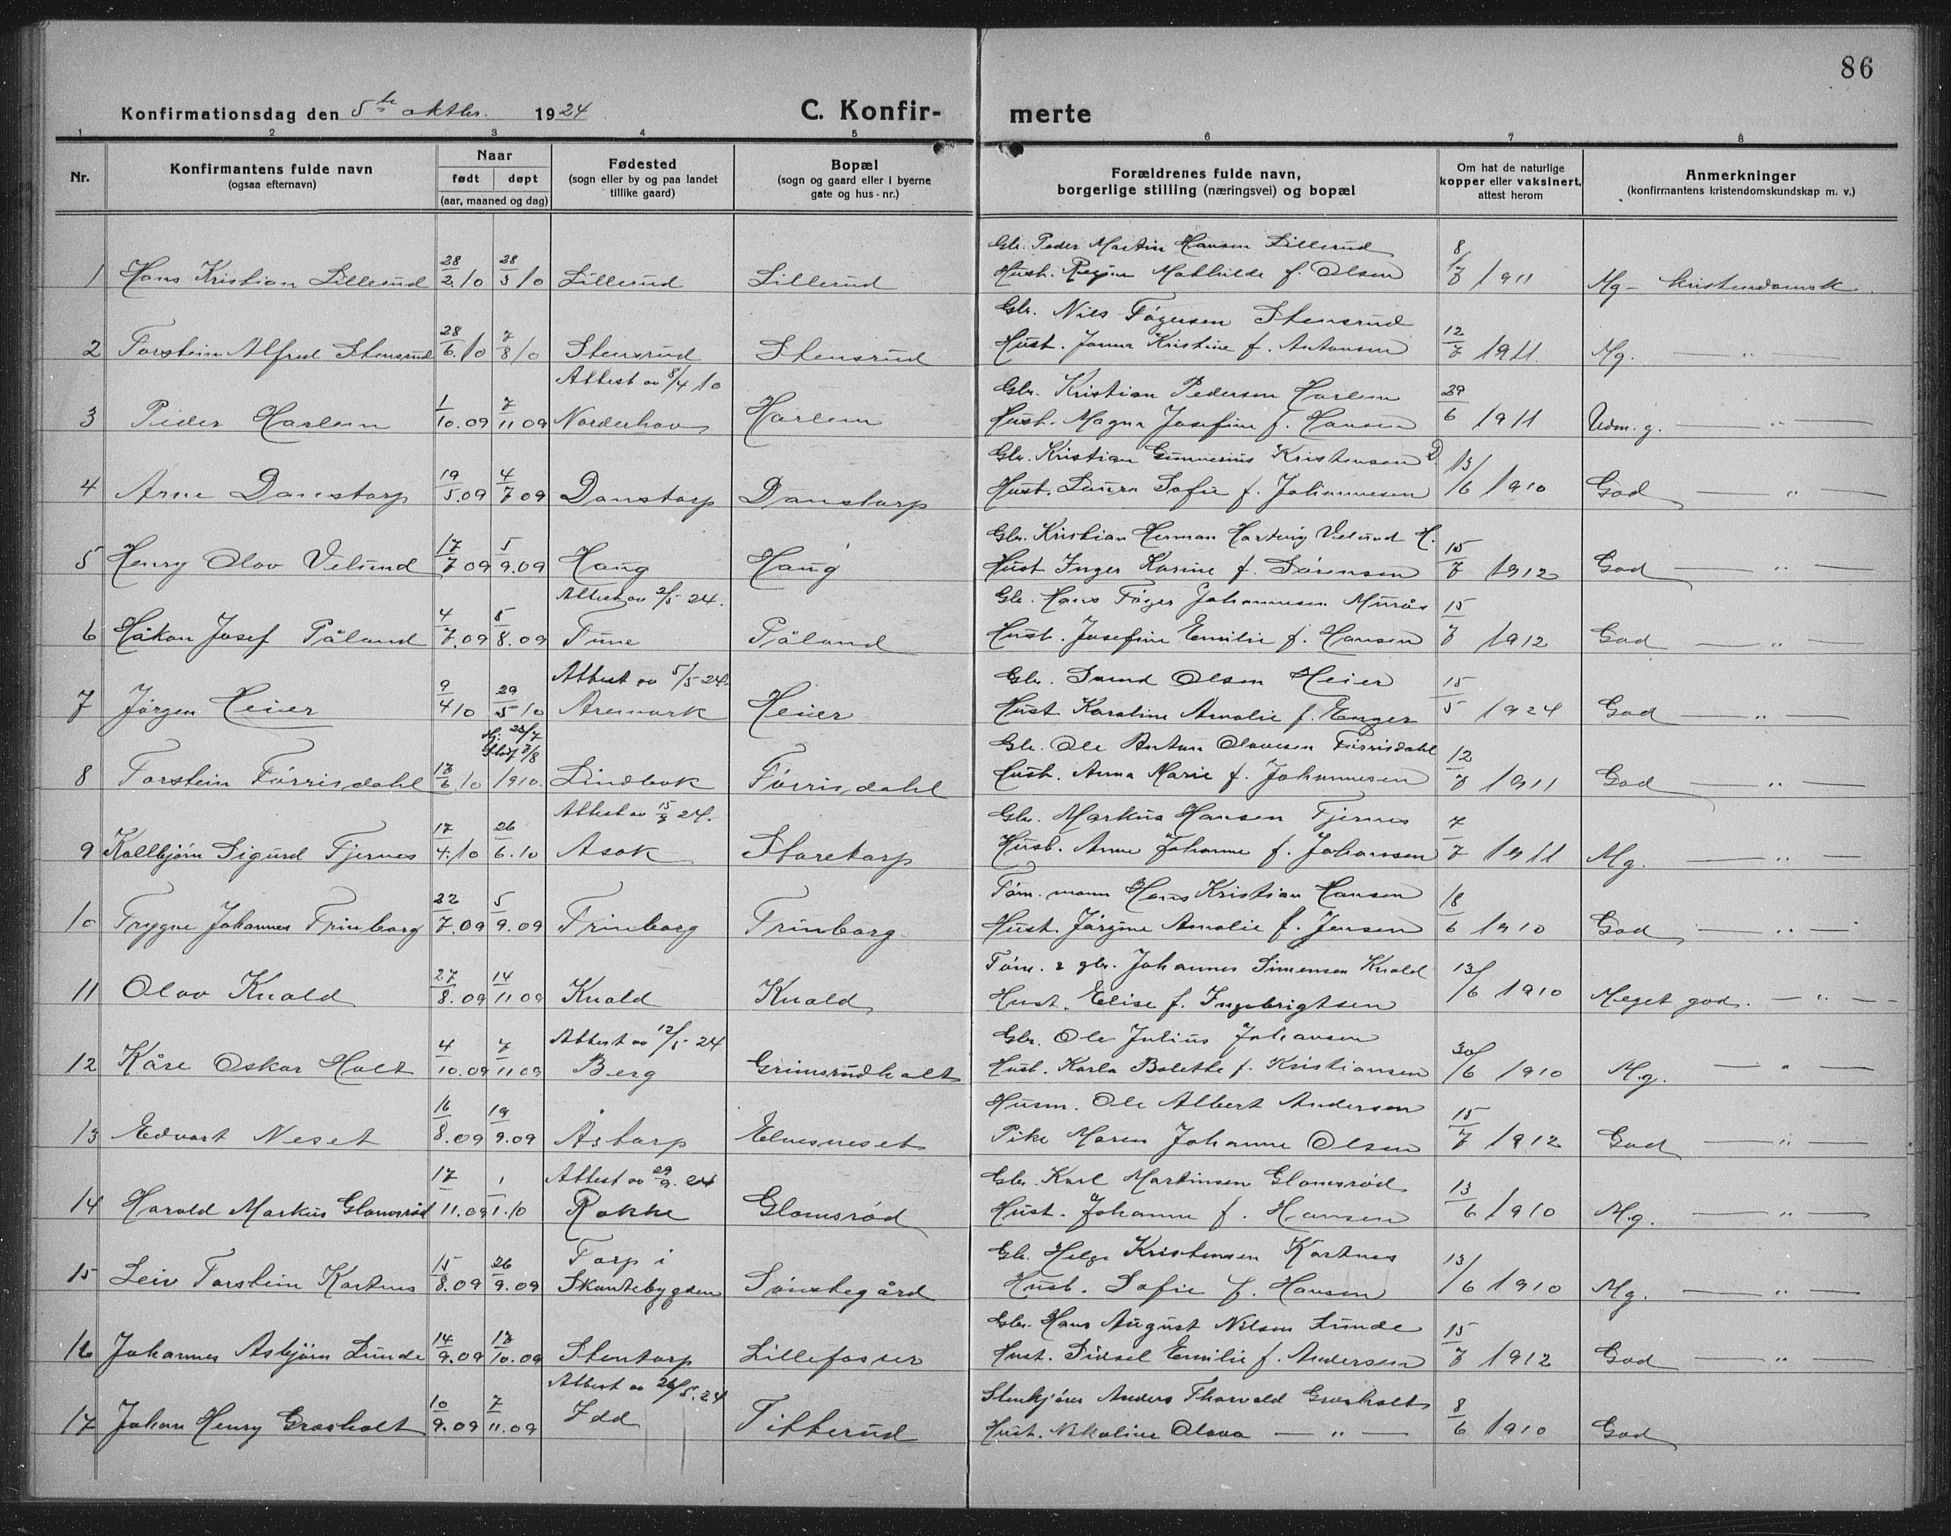 86
Konfirmationsdag den 5te oktbr. 1924 C. Konfirmerte
1 2 3 4 5 6 7 8
Nr. Konfirmantens fulde navn (ogsaa efternavn) Naar født døpt (aar, maaned og dag) Fødested (sogn eller by og paa landet tillike gaard) Bopæl (sogn og gaard eller i byerne gate og hus-nr.) Forældrenes fulde navn, borgerlige stilling (næringsvei) og bopæl Om hat de naturlige kopper eller vaksinert, attest herom Anmerkninger (konfirmantens kristendomskundskap m. v.)
Gbr. Peder Martin Hansen Lillerud
1 Hans Kristian Lillerud 28/2.10 28/3 10 Lillerud Lillerud Hust. Regine Mathilde f. Olsen 8/7 1911 Mg - kristendomsk.
Gbr. Nils Tøgersen Stensrud
2 Torstein Alfred Stensrud 28/6.10 7/8 10 Stensrud Stensrud Hust. Janna Kristine f. Antonsen 12/7 1911. Mg. — " —
Attest av 8/4 10 Gbr. Kristian Pedersen Harlem
3 Peder Harlem 1/10.09 7/11 09 Norderhov Harlem Hust. Magna Josefine f. Hansen 29/6 1911 Udm. g. — " —
Gbr. Kristian Gunnerius Kristensen D.
4 Arne Danstorp 19/5.09 4/7 09 Danstorp Danstorp Hust. Laura Sofie f. Johannesen 13/6 1910 God — " —
Gbr. Kristian Herman Hartvig Velund H.
5 Henry Olav Velund 17/7 09 5/9.09 Haug Haug Hust Inger Karine f. Sørensen 15/7 1912 God — " —
Attest av 2/5 - 24. Gbr. Hans Tøger Johannesen Murås
6 Håkon Josef Påland 4/7.09 8/8.09 Tune Påland Hust. Josefine Emilie f. Hansen 15/7 1912 God — " —
Attest av 5/5 24. Gbr. Svend Olsen Heier
7 Jørgen Heier 9/4 10 29/5 10 Aremark Heier Hust Karoline Amalie f. Enger 15/5 1924 God — " —
Gbr. Ole Anton OlavesenFørrisdahl
8 Torstein Førrisdahl 17/6 10 1910. Lindbok Førrisdahl Hust. Anna Marie f. Johannesen 12/7 1911 God — " —
Attest av 15/7 24. Gbr. Markus Hansen Tjernes
9 Kolbjørn Sigurd Tjernes 17/4.10 26/6.10 Asak Storetorp Hust. Anne Johanne f. Johanssen 7/7 1911 Mg. — " —
Tøm. mann Hans Kristian Hansen
10 Trygve Johannes Trinborg 22/7.09 5/9.09 Trinborg Trinborg Hust. Jørgine Amalie f. Jensen 18/6 1910 God — " —
Tøm. & gbr. Johannes Simensen Knald
11 Olav Knald 27/8.09 14/11 09 Knald Knald Hust. Elise f. Ingebrigtsen 13/6 1910 Meget god. — " —
Attest av 12/5 - 24 Gbr. Ole Julius Johansen
12 Kåre Oskar Holt 4/10.09 7/11 09 Berg Grimsrudholt Hust. Karla Bolette f. Kristiansen 30/6 1910 M.g. — " —
Husm. Ole Albert Andersen
13 Edvart Neset 16/8.09 19/9.09 Åstorp Elnesneset Pike Maren Johanne Olsen 15/7 1912 God — " —
Attest av 29/9. 24 Gbr. Karl Martinsen Glomsrød
14 Harald Markus Glomsrød 17/11.09 1/1.10 Rokke Glomsrød Hust. Johanne f. Hansen 13/6 1910 M.g. — " —
Torp i Gbr. Helge Kristensen Kortnes
15 Leiv Torstein Kortnes 15/8.09 26/9.09 Skantebygden Sønstegård Hust. Sofie f. Hansen 13/6 1910 Mg. — " —
Gbr. Hans August Nilsen Lunde
16 Johannes Asbjørn Lunde 14/9.09 17/10.09 Stentorp Lillefosser Hust. Sidsel Emilie f. Andersen 15/7 1912 God — " —
Attest av 26/5. 24 Stenkjører Anders Thorvald Grosholt
17 Johan Henry Grosholt 10/9.09 7/11.09 Idd Titterud Hust. Nikoline Olava — " — 8/6 1910 God